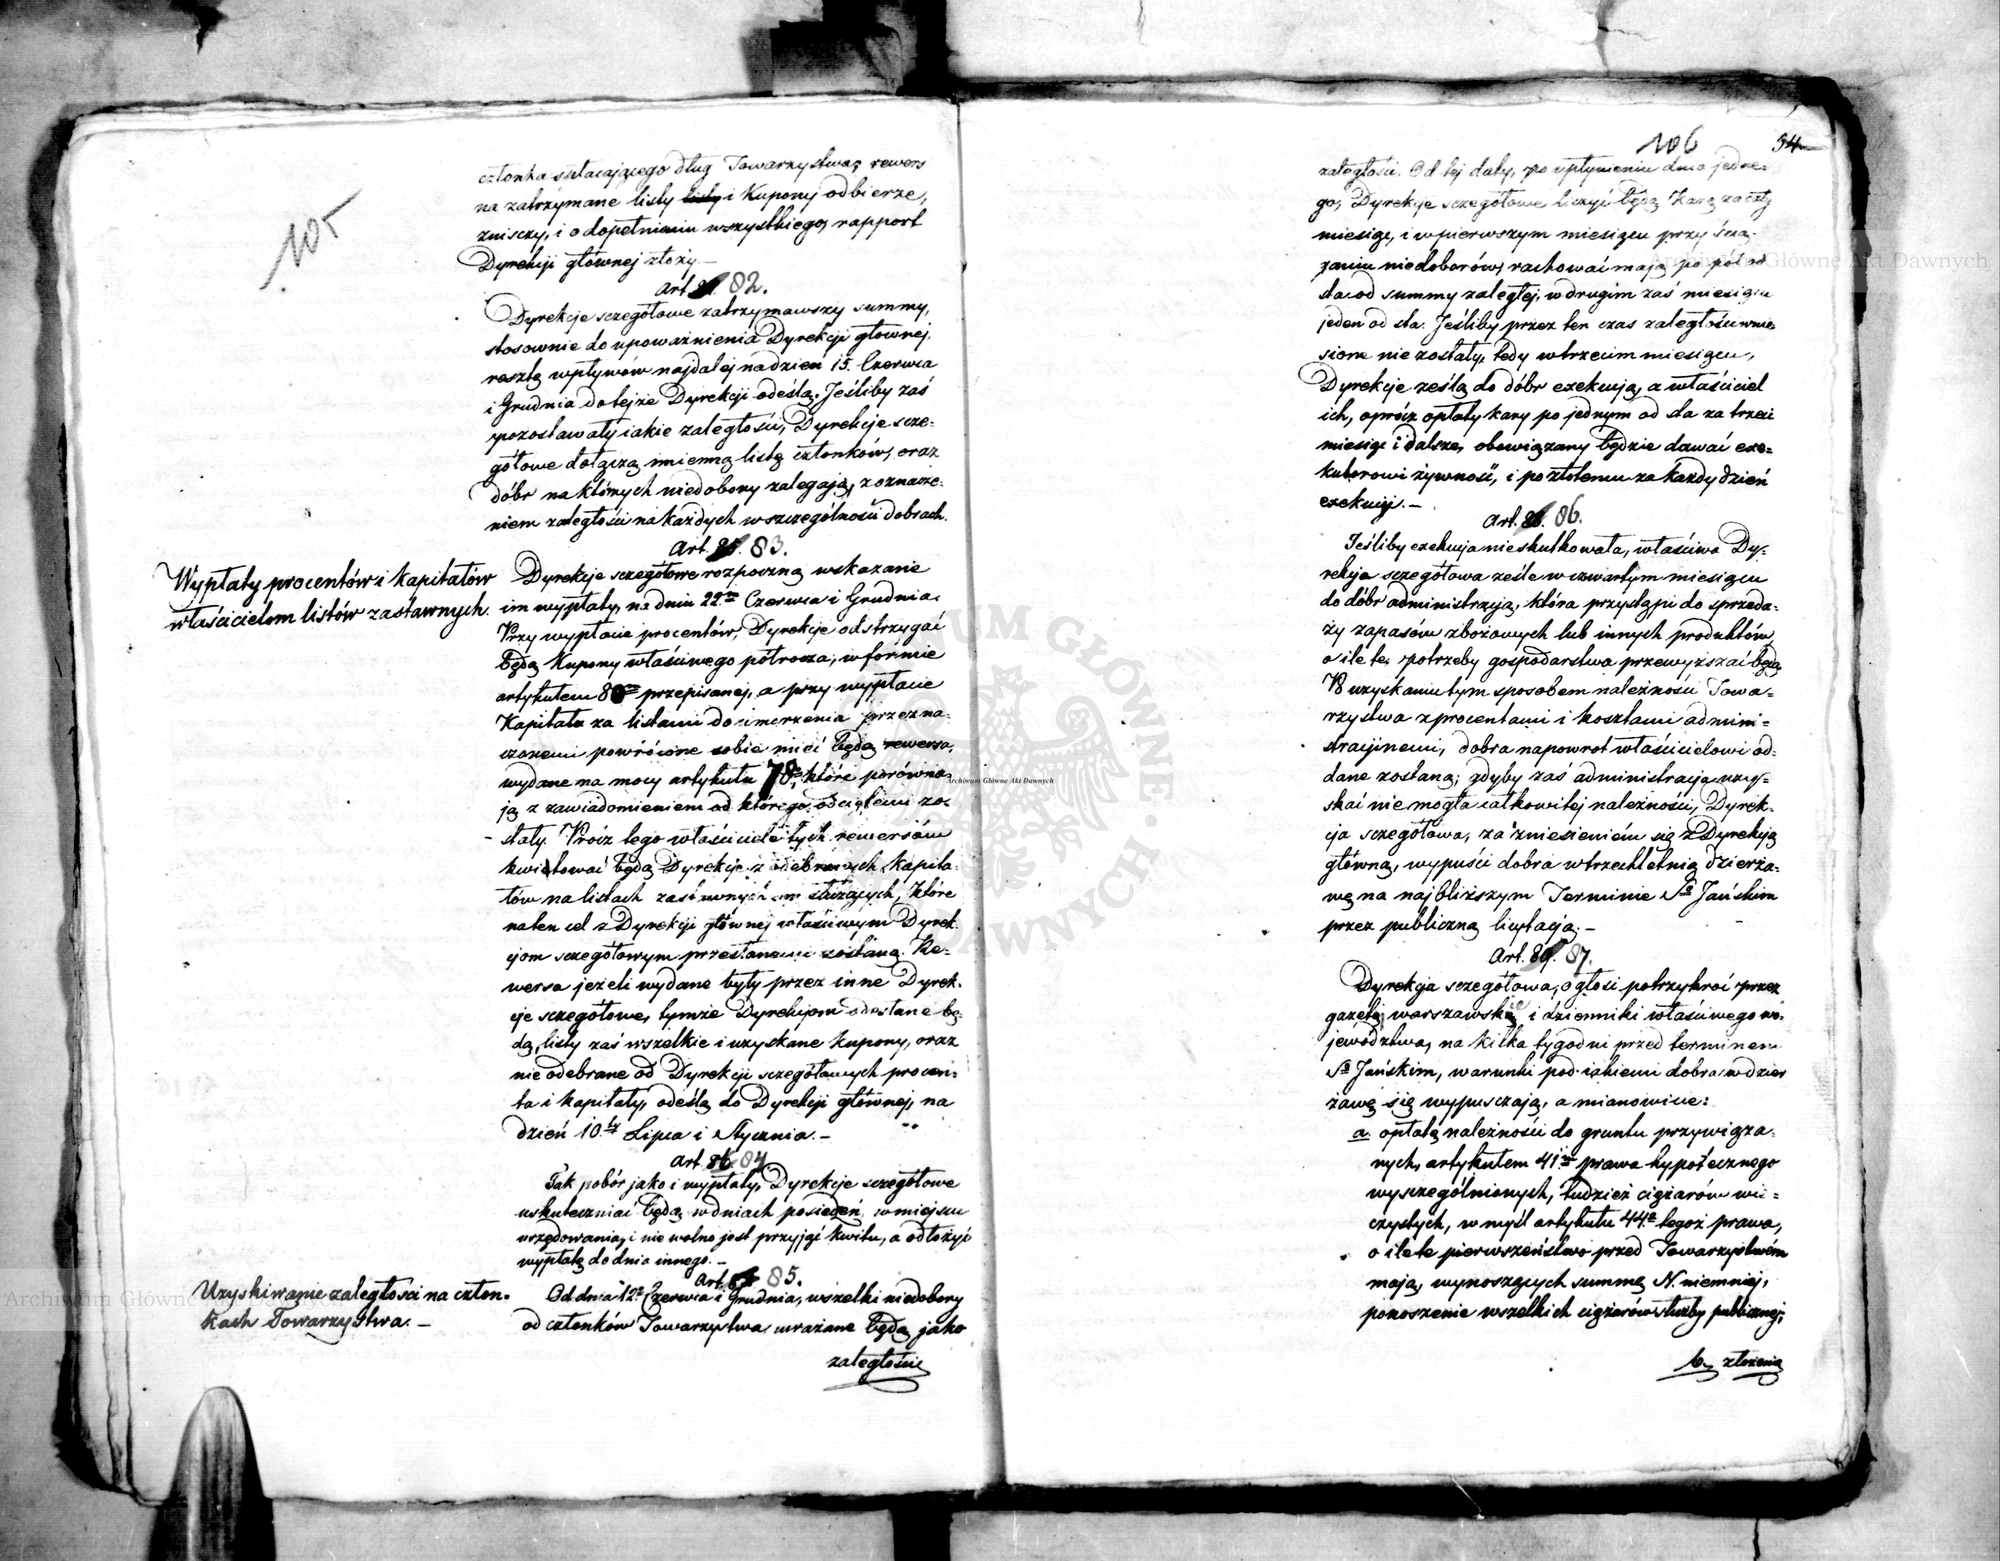 105
członka spłacającego dług Towarzystwa, rewers
na zatrzymane listy listy i Kupony odbierze,
zniszczy, i o dopełnieniu wszystkiego, rapport
Dyrekcji głównej złoży. –
Art. 82.
Dyrekcje sczegółowe zatrzymawszy summy,
stosownie do upoważnienia Dyrekcji głównej,
resztę wpływów najdalej na dzień 15. Czerwca
i Grudnia do tejże Dyrekcji odeślą. Jeśliby zaś
pozostawały iakie zaległości, Dyrekcje scze-
gółowe dołączą imienną listę członków, oraz
dóbr na których niedobory zalegają, z oznacze-
niem zaległości na każdych w szczególności dobrach.
Art. 83.
Wypłaty procentów i kapitałów
właścicielom listów zastawnych.
Dyrekcje sczegółowe rozpoczną wskazane
im wypłaty, na dniu 22m Czerwca i Grudnia.
Przy wypłacie procentów, Dyrekcje odstrzygać
będą Kupony właściwego półrocza, w formie
artykułem 80m przepisanej, a przy wypłacie
Kapitału za listami do umorzenia przezna-
czonemi powrócone sobie mieć będą rewersa,
wydane na mocy artykułu 78o, które porówna-
ją z zawiadomieniem od którego odciętemi zo-
stały. Prócz tego właściciele tych rewersów
kwitować będą Dyrekcje z odebranych Kapita-
łów na listach zastawnych im służących, które
na ten cel z Dyrekcji głównej właściwym Dyrek-
cjom sczegółowym przesłanemi zostaną. Re-
wersa jeżeli wydane były przez inne Dyrek-
cje sczegółowe, tymże Dyrekcjom odesłane bę-
dą, listy zaś wszelkie i uzyskane Kupony, oraz
nie odebrane od Dyrekcji sczegółowych procen-
ta i kapitały, odeślą do Dyrekcji głównej, na
dzień 10.ty Lipca i Stycznia. –
Art. 86 84
Tak pobór jako i wypłaty, Dyrekcje sczegółowe
uskuteczniać będą w dniach posiedzeń, w miejscu
urzędowania, i nie wolno jest przyjąć kwitu, a odłożyć
wypłatę do dnia innego. –
Art. 85.
Uzyskiwanie zaległości na człon-
kach Towarzystwa. –
Od dnia 12o Czerwca i Grudnia, wszelki niedobory
od członków Towarzystwa, uważane będą jako
zaległości
106
54
zaległości. Od tej daty, po upłynieniu dnia jedne-
go, Dyrekcje sczegółowe liczyć będą Karę za cały
miesiąc, i w pierwszym miesiącu przy ścią-
ganiu niedoborów, rachować mają po pół od
sta od summy zaległej, w drugim zaś miesiącu
jeden od sta. Jeśliby przez ten czas zaległości wnie-
sione nie zostały, tedy w trzecim miesiącu,
Dyrekcje ześlą do dóbr exekucją, a właściciel
ich, oprócz opłaty kary po jednym od sta za trzeci
miesiąc i dalsze, obowiązany będzie dawać exe-
kutorowi żywność, i po złotemu za każdy dzień
exekucji. –
Art. 86.
Jeśliby exekucja nieskutkowała, właściwa Dy-
rekcja sczegółowa ześle w czwartym miesiącu
do dóbr administracją, która przystąpi do sprzeda-
ży zapasów zbożowych lub innych produktów,
o ile te, potrzeby gospodarstwa przewyższać będą.
W uzyskaniu tym sposobem należności Towa-
rzystwa z procentami i kosztami admini-
stracyjnemi, dobra napowrot właścicielowi od-
dane zostaną; gdyby zaś administracja uzy-
skać nie mogła całkowitej należności, Dyrek-
cja sczegółowa, za zniesieniem się z Dyrekcją
główną, wypuści dobra w trzechletnią dzierża-
wę na najbliższym Terminie So Jańskim
przez publiczną licytacją. –
Art. 87.
Dyrekcja sczegółowa, ogłosi potrzykroć przez
gazety warszawskie i dzienniki właściwego wo-
jewództwa, na kilka tygodni przed terminem
So Jańskim, warunki pod iakiemi dobra w dzier
żawę się wypusczają, a mianowicie:
a. opłatę należności do gruntu przywiąza-
nych, artykułem 41m prawa hypotecznego
wyszczególnionych, tudzież ciężarów wie-
czystych, w myśl artykułu 44o tegoż prawa,
o ile te pierwszeństwo przed Towarzystwem
mają, wynoszących summę N. niemniej,
ponoszenie wszelkich ciężarów służby publicznej,
b. złożenia
Archiwum Główne Akt Dawnych